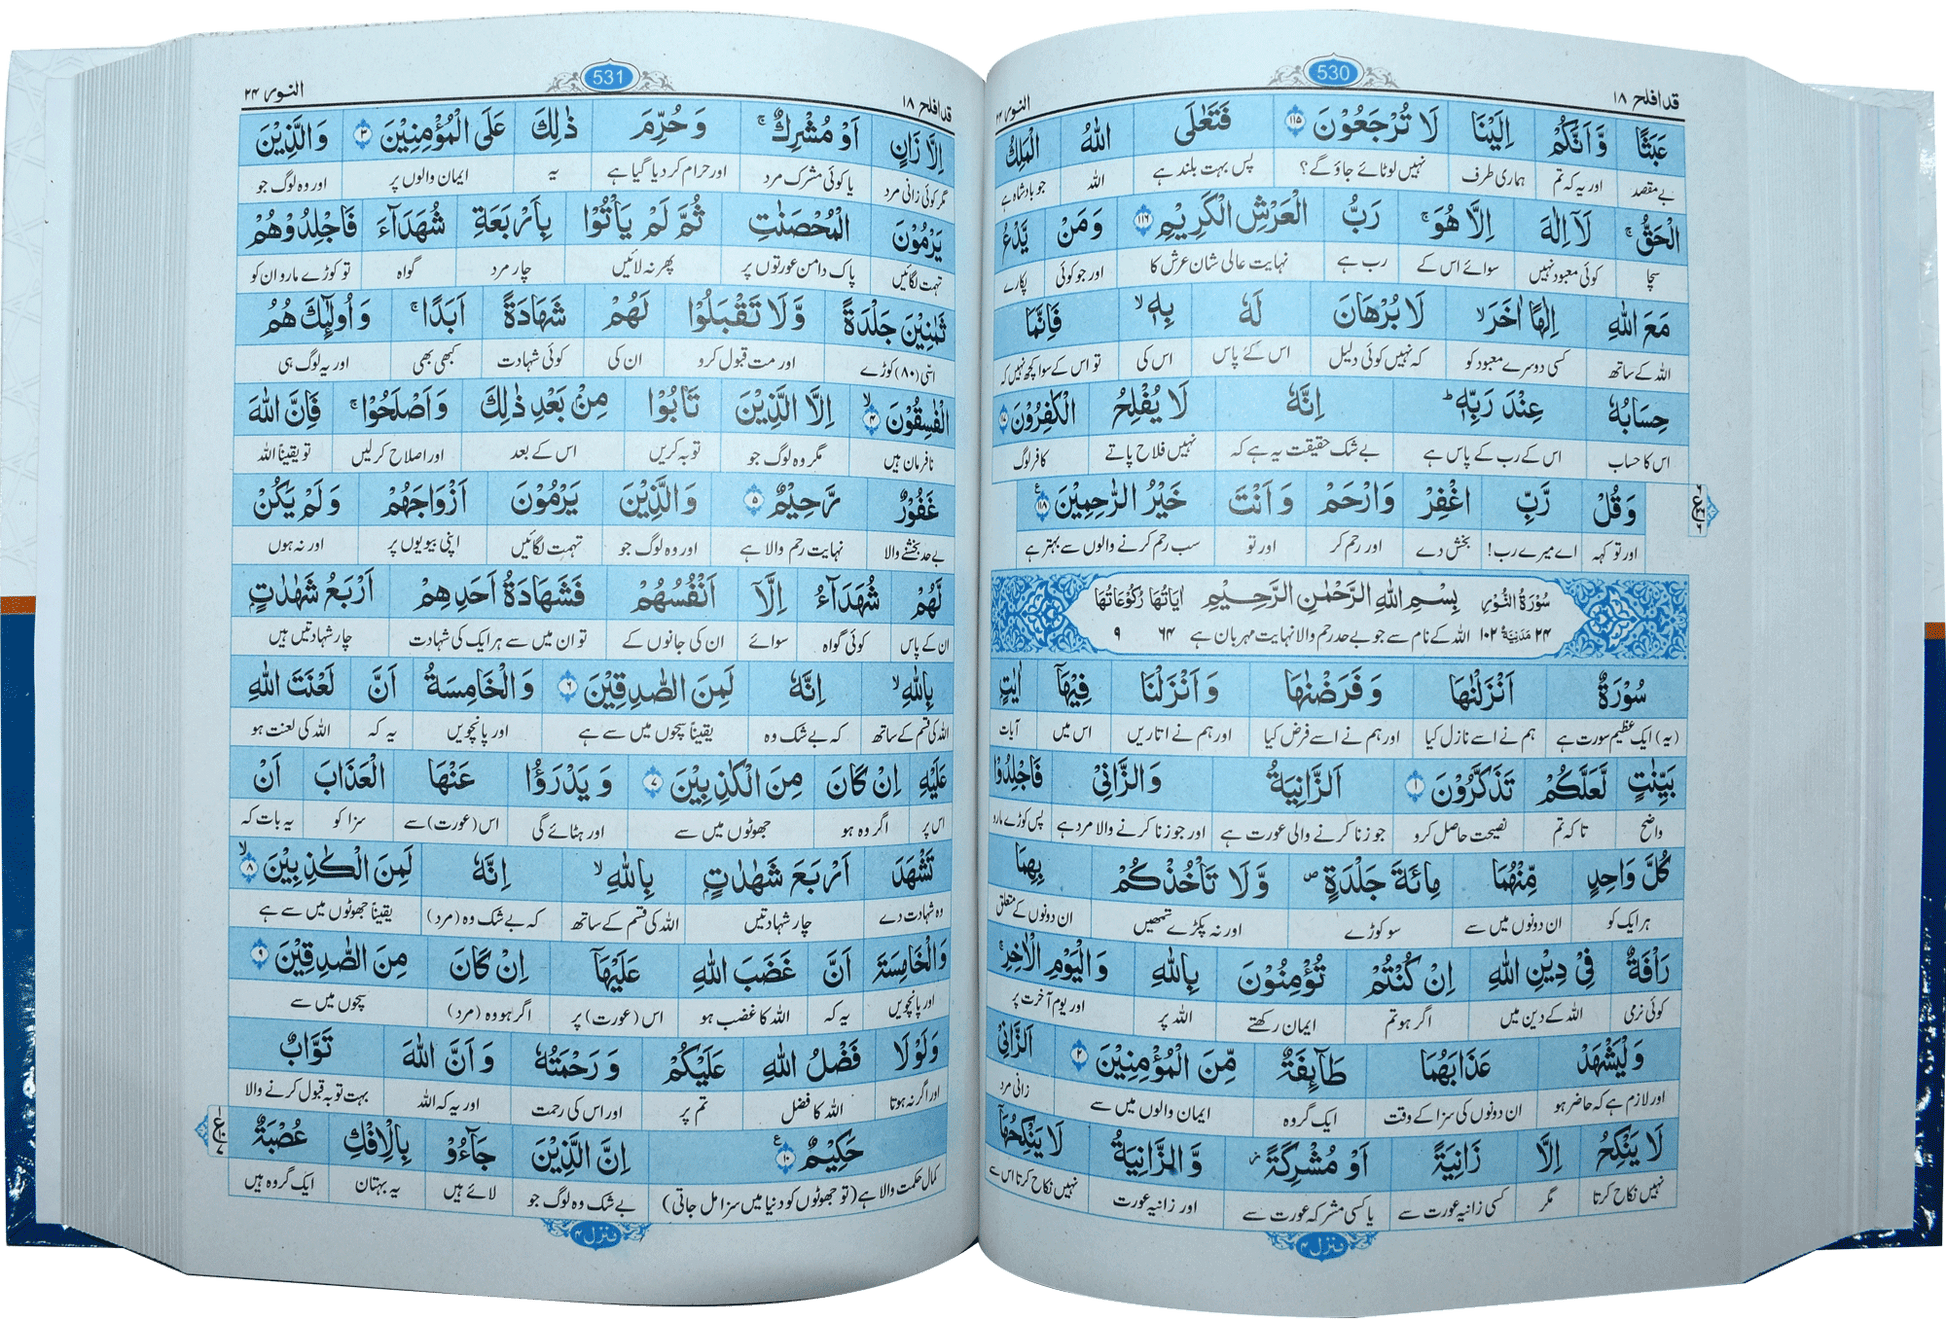 قد افلح ۱۸
530
النور ۲۴
عَبَثًا وَّاَنَّكُمْ اِلَيْنَا لَا تُرْجَعُوْنَ ۱۱۵ فَتَعٰلَى اللّٰهُ الْمَلِكُ
بے مقصد اور یہ کہ تم ہماری طرف نہیں لوٹائے جاؤ گے؟ پس بہت بلند ہے اللہ جو بادشاہ ہے
الْحَقُّ ۚ لَاۤ اِلٰهَ اِلَّا هُوَ ۚ رَبُّ الْعَرْشِ الْكَرِيْمِ ۱۱۶ وَمَنْ يَّدْعُ
سچا کوئی معبود نہیں سوائے اس کے رب ہے نہایت عالی شان عرش کا اور جو کوئی پکارے
مَعَ اللّٰهِ اِلٰهًا اٰخَرَ ۙ لَا بُرْهَانَ لَهٗ بِهٖ ۙ فَاِنَّمَا
اللہ کے ساتھ کسی دوسرے معبود کو کہ نہیں کوئی دلیل اس کے پاس اس کی تو اس کے سوا کچھ نہیں کہ
حِسَابُهٗ عِنْدَ رَبِّهٖ ؕ اِنَّهٗ لَا يُفْلِحُ الْكٰفِرُوْنَ ۱۱۷
اس کا حساب اس کے رب کے پاس ہے بے شک حقیقت یہ ہے کہ نہیں فلاح پاتے کافر لوگ
وَقُلْ رَّبِّ اغْفِرْ وَارْحَمْ وَاَنْتَ خَيْرُ الرّٰحِمِيْنَ ۱۱۸
اور تو کہہ اے میرے رب! بخش دے اور رحم کر اور تو سب رحم کرنے والوں سے بہتر ہے
سُوْرَةُ النُّوْرِ بِسْمِ اللّٰهِ الرَّحْمٰنِ الرَّحِيْمِ اٰيَاتُهَا رُكُوْعَاتُهَا
۲۴ مَدَنِيَّةٌ ۱۰۲ اللہ کے نام سے جو بے حد رحم والا نہایت مہربان ہے ۶۴ ۹
سُوْرَةٌ اَنْزَلْنٰهَا وَفَرَضْنٰهَا وَاَنْزَلْنَا فِيْهَاۤ اٰيٰتٍۭ
(یہ) ایک عظیم سورت ہے ہم نے اسے نازل کیا اور ہم نے اسے فرض کیا اور ہم نے اتاریں اس میں آیات
بَيِّنٰتٍ لَّعَلَّكُمْ تَذَكَّرُوْنَ ۱ اَلزَّانِيَةُ وَالزَّانِيْ فَاجْلِدُوْا
واضح تاکہ تم نصیحت حاصل کرو جو زنا کرنے والی عورت ہے اور جو زنا کرنے والا مرد ہے پس کوڑے مارو
كُلَّ وَاحِدٍ مِّنْهُمَا مِائَةَ جَلْدَةٍ ۪ وَّلَا تَاْخُذْكُمْ بِهِمَا
ہر ایک کو ان دونوں میں سے سو کوڑے اور نہ پکڑے تمھیں ان دونوں کے متعلق
رَاْفَةٌ فِيْ دِيْنِ اللّٰهِ اِنْ كُنْتُمْ تُؤْمِنُوْنَ بِاللّٰهِ وَالْيَوْمِ الْاٰخِرِ ۚ
کوئی نرمی اللہ کے دین میں اگر ہو تم ایمان رکھتے اللہ پر اور یوم آخرت پر
وَلْيَشْهَدْ عَذَابَهُمَا طَآئِفَةٌ مِّنَ الْمُؤْمِنِيْنَ ۲ اَلزَّانِيْ
اور لازم ہے کہ حاضر ہو ان دونوں کی سزا کے وقت ایک گروہ ایمان والوں میں سے زانی مرد
لَا يَنْكِحُ اِلَّا زَانِيَةً اَوْ مُشْرِكَةً ۫ وَّالزَّانِيَةُ لَا يَنْكِحُهَاۤ
نہیں نکاح کرتا مگر کسی زانیہ عورت سے یا کسی مشرکہ عورت سے اور زانیہ عورت نہیں نکاح کرتا اس سے
منزل ۴
قد افلح ۱۸
531
النور ۲۴
اِلَّا زَانٍ اَوْ مُشْرِكٌ ۚ وَحُرِّمَ ذٰلِكَ عَلَى الْمُؤْمِنِيْنَ ۳ وَالَّذِيْنَ
مگر کوئی زانی مرد یا کوئی مشرک مرد اور حرام کر دیا گیا ہے یہ ایمان والوں پر اور وہ لوگ جو
يَرْمُوْنَ الْمُحْصَنٰتِ ثُمَّ لَمْ يَاْتُوْا بِاَرْبَعَةِ شُهَدَآءَ فَاجْلِدُوْهُمْ
تہمت لگائیں پاک دامن عورتوں پر پھر نہ لائیں چار مرد گواہ تو کوڑے مارو ان کو
ثَمٰنِيْنَ جَلْدَةً وَّلَا تَقْبَلُوْا لَهُمْ شَهَادَةً اَبَدًا ۚ وَاُولٰٓئِكَ هُمُ
اسّی (۸۰) کوڑے اور مت قبول کرو ان کی کوئی شہادت کبھی بھی اور یہ لوگ ہی
الْفٰسِقُوْنَ ۴ اِلَّا الَّذِيْنَ تَابُوْا مِنْۢ بَعْدِ ذٰلِكَ وَاَصْلَحُوْا ۚ فَاِنَّ اللّٰهَ
نافرمان ہیں مگر وہ لوگ جو توبہ کریں اس کے بعد اور اصلاح کر لیں تو یقیناً اللہ
غَفُوْرٌ رَّحِيْمٌ ۵ وَالَّذِيْنَ يَرْمُوْنَ اَزْوَاجَهُمْ وَلَمْ يَكُنْ
بے حد بخشنے والا نہایت رحم والا ہے اور وہ لوگ جو تہمت لگائیں اپنی بیویوں پر اور نہ ہوں
لَّهُمْ شُهَدَآءُ اِلَّاۤ اَنْفُسُهُمْ فَشَهَادَةُ اَحَدِهِمْ اَرْبَعُ شَهٰدٰتٍۭ
ان کے پاس کوئی گواہ سوائے ان کی جانوں کے تو ان میں سے ہر ایک کی شہادت چار شہادتیں ہیں
بِاللّٰهِ ۙ اِنَّهٗ لَمِنَ الصّٰدِقِيْنَ ۶ وَالْخَامِسَةُ اَنَّ لَعْنَتَ اللّٰهِ
اللہ کی قسم کے ساتھ کہ بے شک وہ یقیناً سچوں میں سے ہے اور پانچویں یہ کہ اللہ کی لعنت ہو
عَلَيْهِ اِنْ كَانَ مِنَ الْكٰذِبِيْنَ ۷ وَيَدْرَؤُا عَنْهَا الْعَذَابَ اَنْ
اس پر اگر وہ ہو جھوٹوں میں سے اور ہٹائے گی اس (عورت) سے سزا کو یہ بات کہ
تَشْهَدَ اَرْبَعَ شَهٰدٰتٍۭ بِاللّٰهِ ۙ اِنَّهٗ لَمِنَ الْكٰذِبِيْنَ ۸
وہ شہادت دے چار شہادتیں اللہ کی قسم کے ساتھ کہ بے شک وہ (مرد) یقیناً جھوٹوں میں سے ہے
وَالْخَامِسَةَ اَنَّ غَضَبَ اللّٰهِ عَلَيْهَاۤ اِنْ كَانَ مِنَ الصّٰدِقِيْنَ ۹
اور پانچویں یہ کہ اللہ کا غضب ہو اس (عورت) پر اگر ہو وہ (مرد) سچوں میں سے
وَلَوْلَا فَضْلُ اللّٰهِ عَلَيْكُمْ وَرَحْمَتُهٗ وَاَنَّ اللّٰهَ تَوَّابٌ
اور اگر نہ ہوتا اللہ کا فضل تم پر اور اس کی رحمت اور یہ کہ اللہ بہت توبہ قبول کرنے والا
حَكِيْمٌ ۱۰ اِنَّ الَّذِيْنَ جَآءُوْ بِالْاِفْكِ عُصْبَةٌ
کمال حکمت والا ہے (تو جھوٹوں کو دنیا میں سزا مل جاتی) بے شک وہ لوگ جو لائے ہیں یہ بہتان ایک گروہ ہیں
منزل ۴